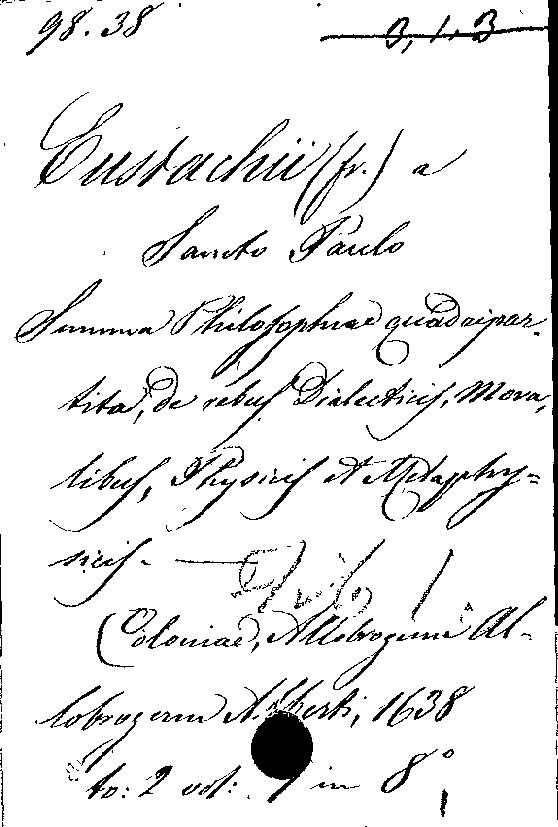 98.38 3, 1, 3
Eustachii (fr.) a
Sancto Paulo
Summa Philosophiae quadripar-
tita, de rebus Dialecticis, Mora,
libus, Physicis et Metaphy=
sicis.
Coloniae, Allobrogum Al-
lobrogum 1638
to: 2 vol: 1 in 8°